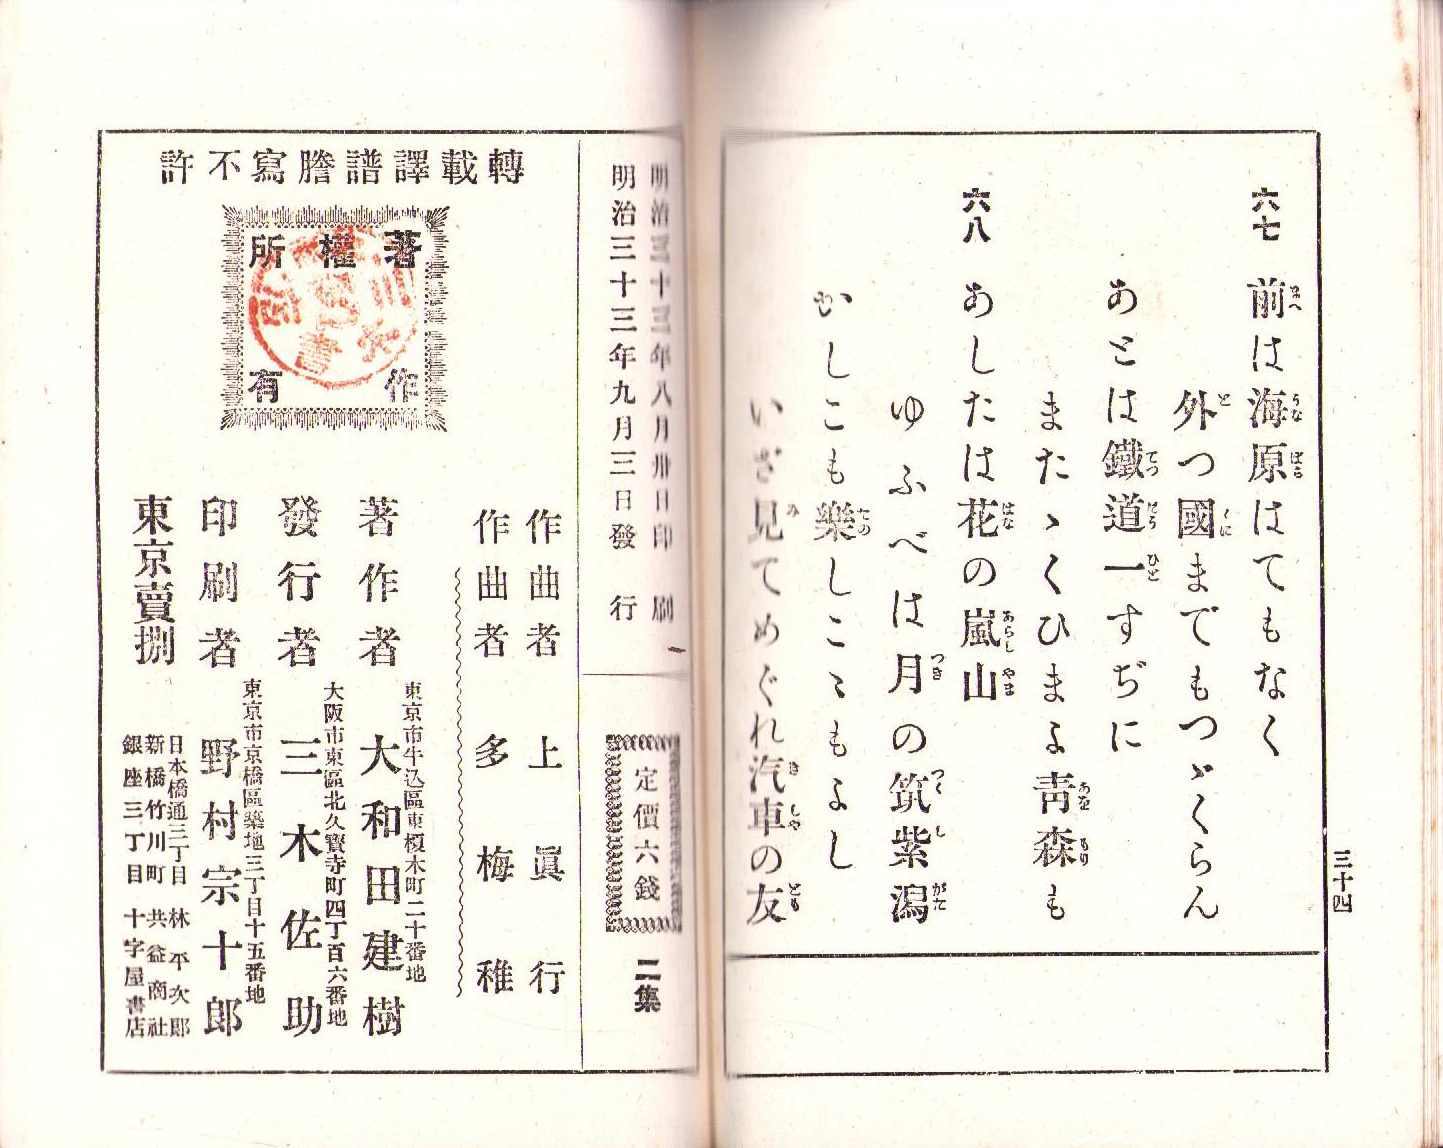 三十四
まへ うな ばら
六七 前は海原はてもなく
と くに
外つ國までもつゞくらん
てつ だう ひと
あとは鐵道一すぢに
あを もり
またゝくひまよ青森も
はな あらし やま
六八 あしたは花の嵐山
つき つく し がた
ゆふべは月の筑紫潟
たの
かしこも樂しこゝもよし
み き しや とも
いざ見てめぐれ汽車の友
明治三十三年八月卅日印刷
明治三十三年九月三日發行
定價六錢
二集
轉載譯譜謄寫不許
著作權所有
作曲者 上眞行
作曲者 多梅稚
東京市牛込區東榎木町二十番地
著作者 大和田建樹
大阪市東區北久寶寺町四丁百六番地
發行者 三木佐助
東京市京橋區築地三丁目十五番地
印刷者 野村宗十郎
東京賣捌
日本橋通三丁目 林平次郎
新橋竹川町 共益商社
銀座三丁目 十字屋書店